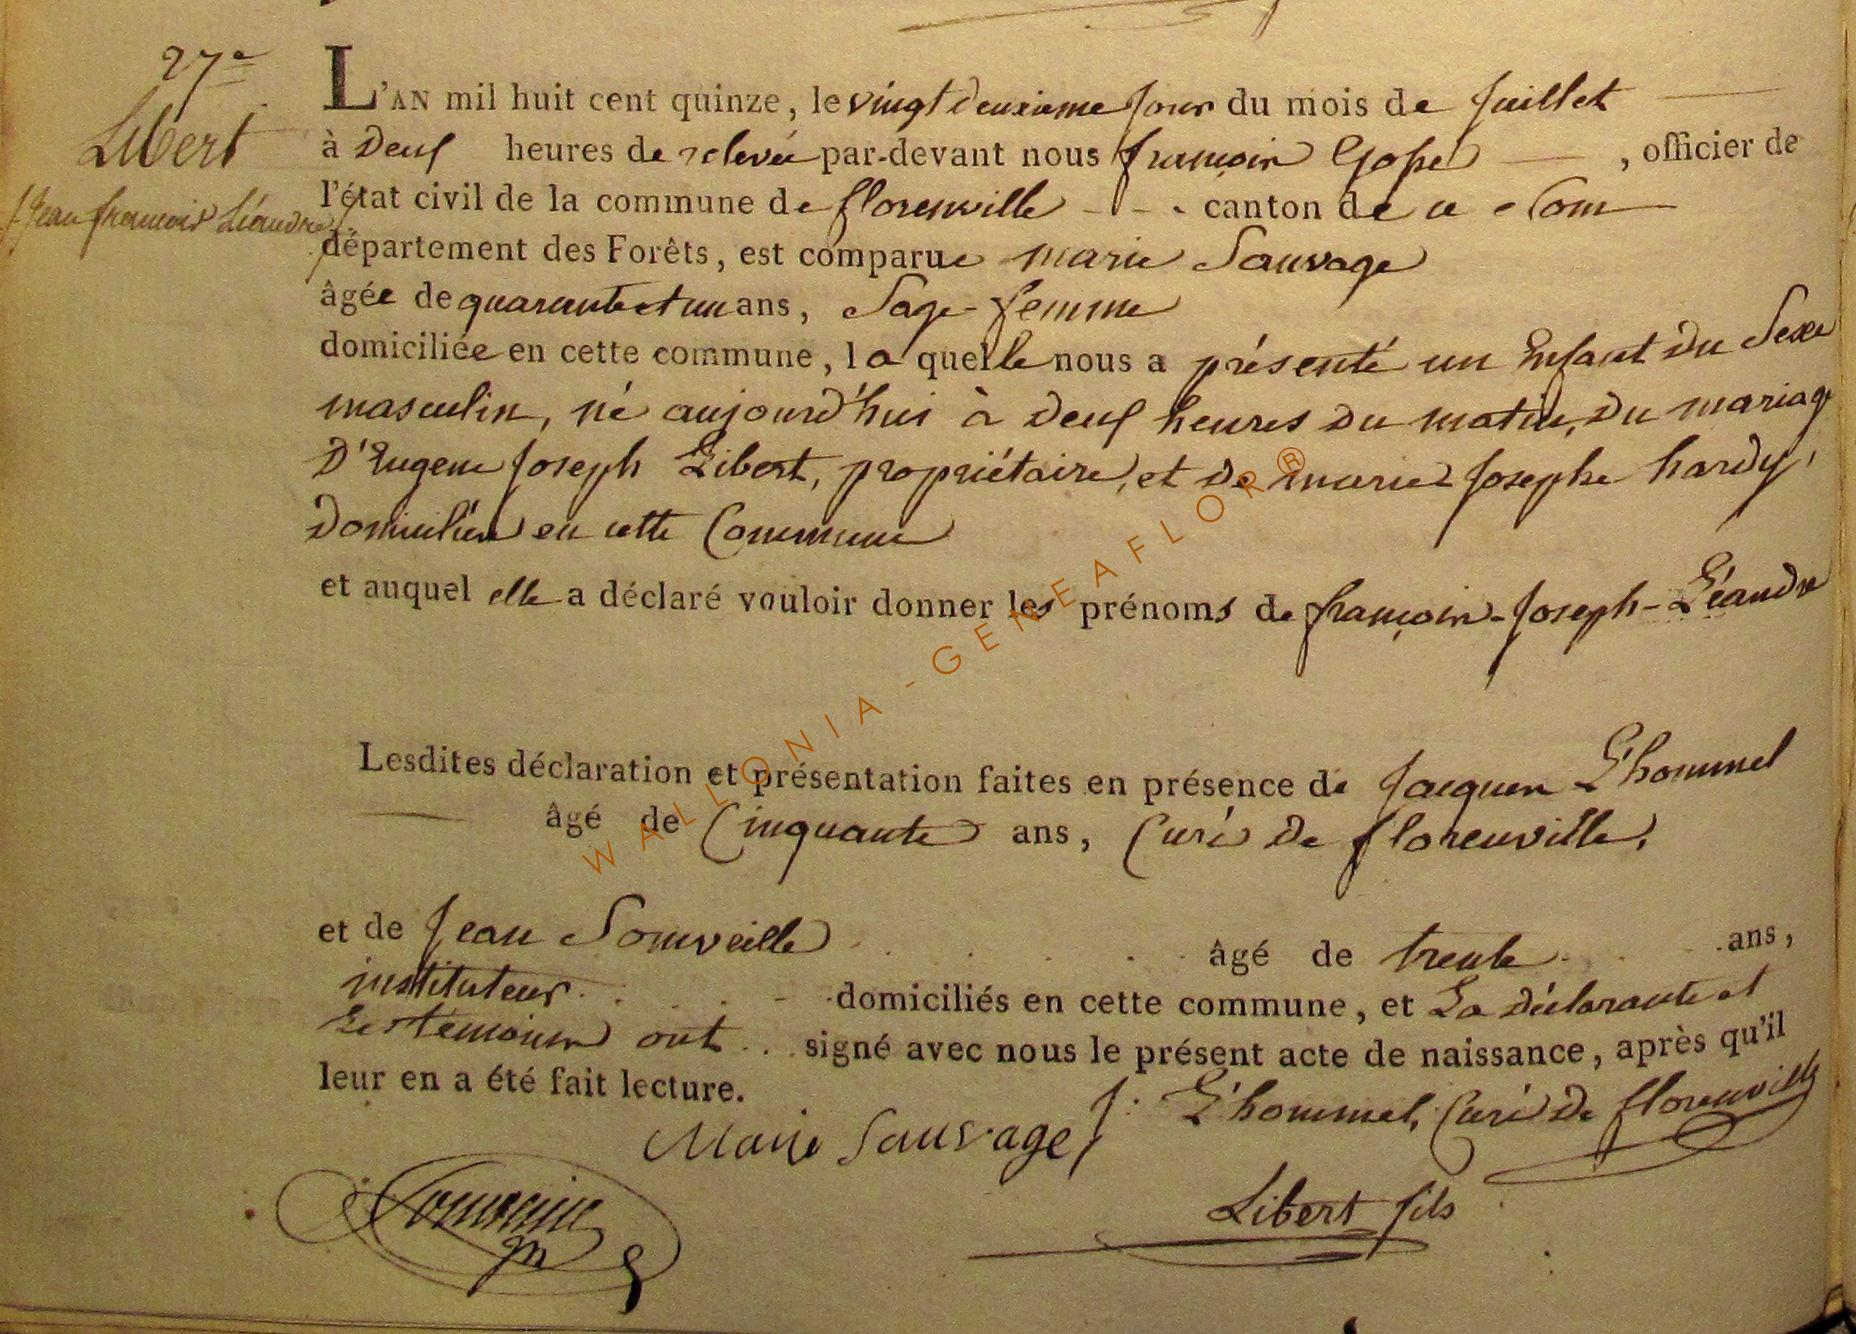 27e
Libert
(Jean françois Léandre)
L'AN mil huit cent quinze, le vingt deuxieme jour du mois de juillet
à deux heures de relevée par-devant nous françois Gofse, officier de
l'état civil de la commune de florenville - - - canton de ce nom
département des Forêts, est comparue marie Sauvage
âgée de quarante et un ans, Sage-femme
domiciliée en cette commune, la quelle nous a présenté un Enfant du Sexe
masculin, né aujourd'hui à deux heures du matin, du mariage
D'Eugene joseph Libert, propriétaire, et de marie josephe hardy,
Domiciliés en cette Commune
et auquel elle a déclaré vouloir donner les prénoms de françois-joseph-Léandre
Lesdites déclaration et présentation faites en présence de jacques L'hommel
âgé de Cinquante ans, Curé de florenville,
et de jean Somveille âgé de trente ans,
instituteur domiciliés en cette commune, et La déclarante et
Les temoins ont signé avec nous le présent acte de naissance, après qu'il
leur en a été fait lecture.
J: L'hommel, Curé de florenville
Marie Sauvage
Somveille
Libert fils
WALLONIA-GENEAFLOR®